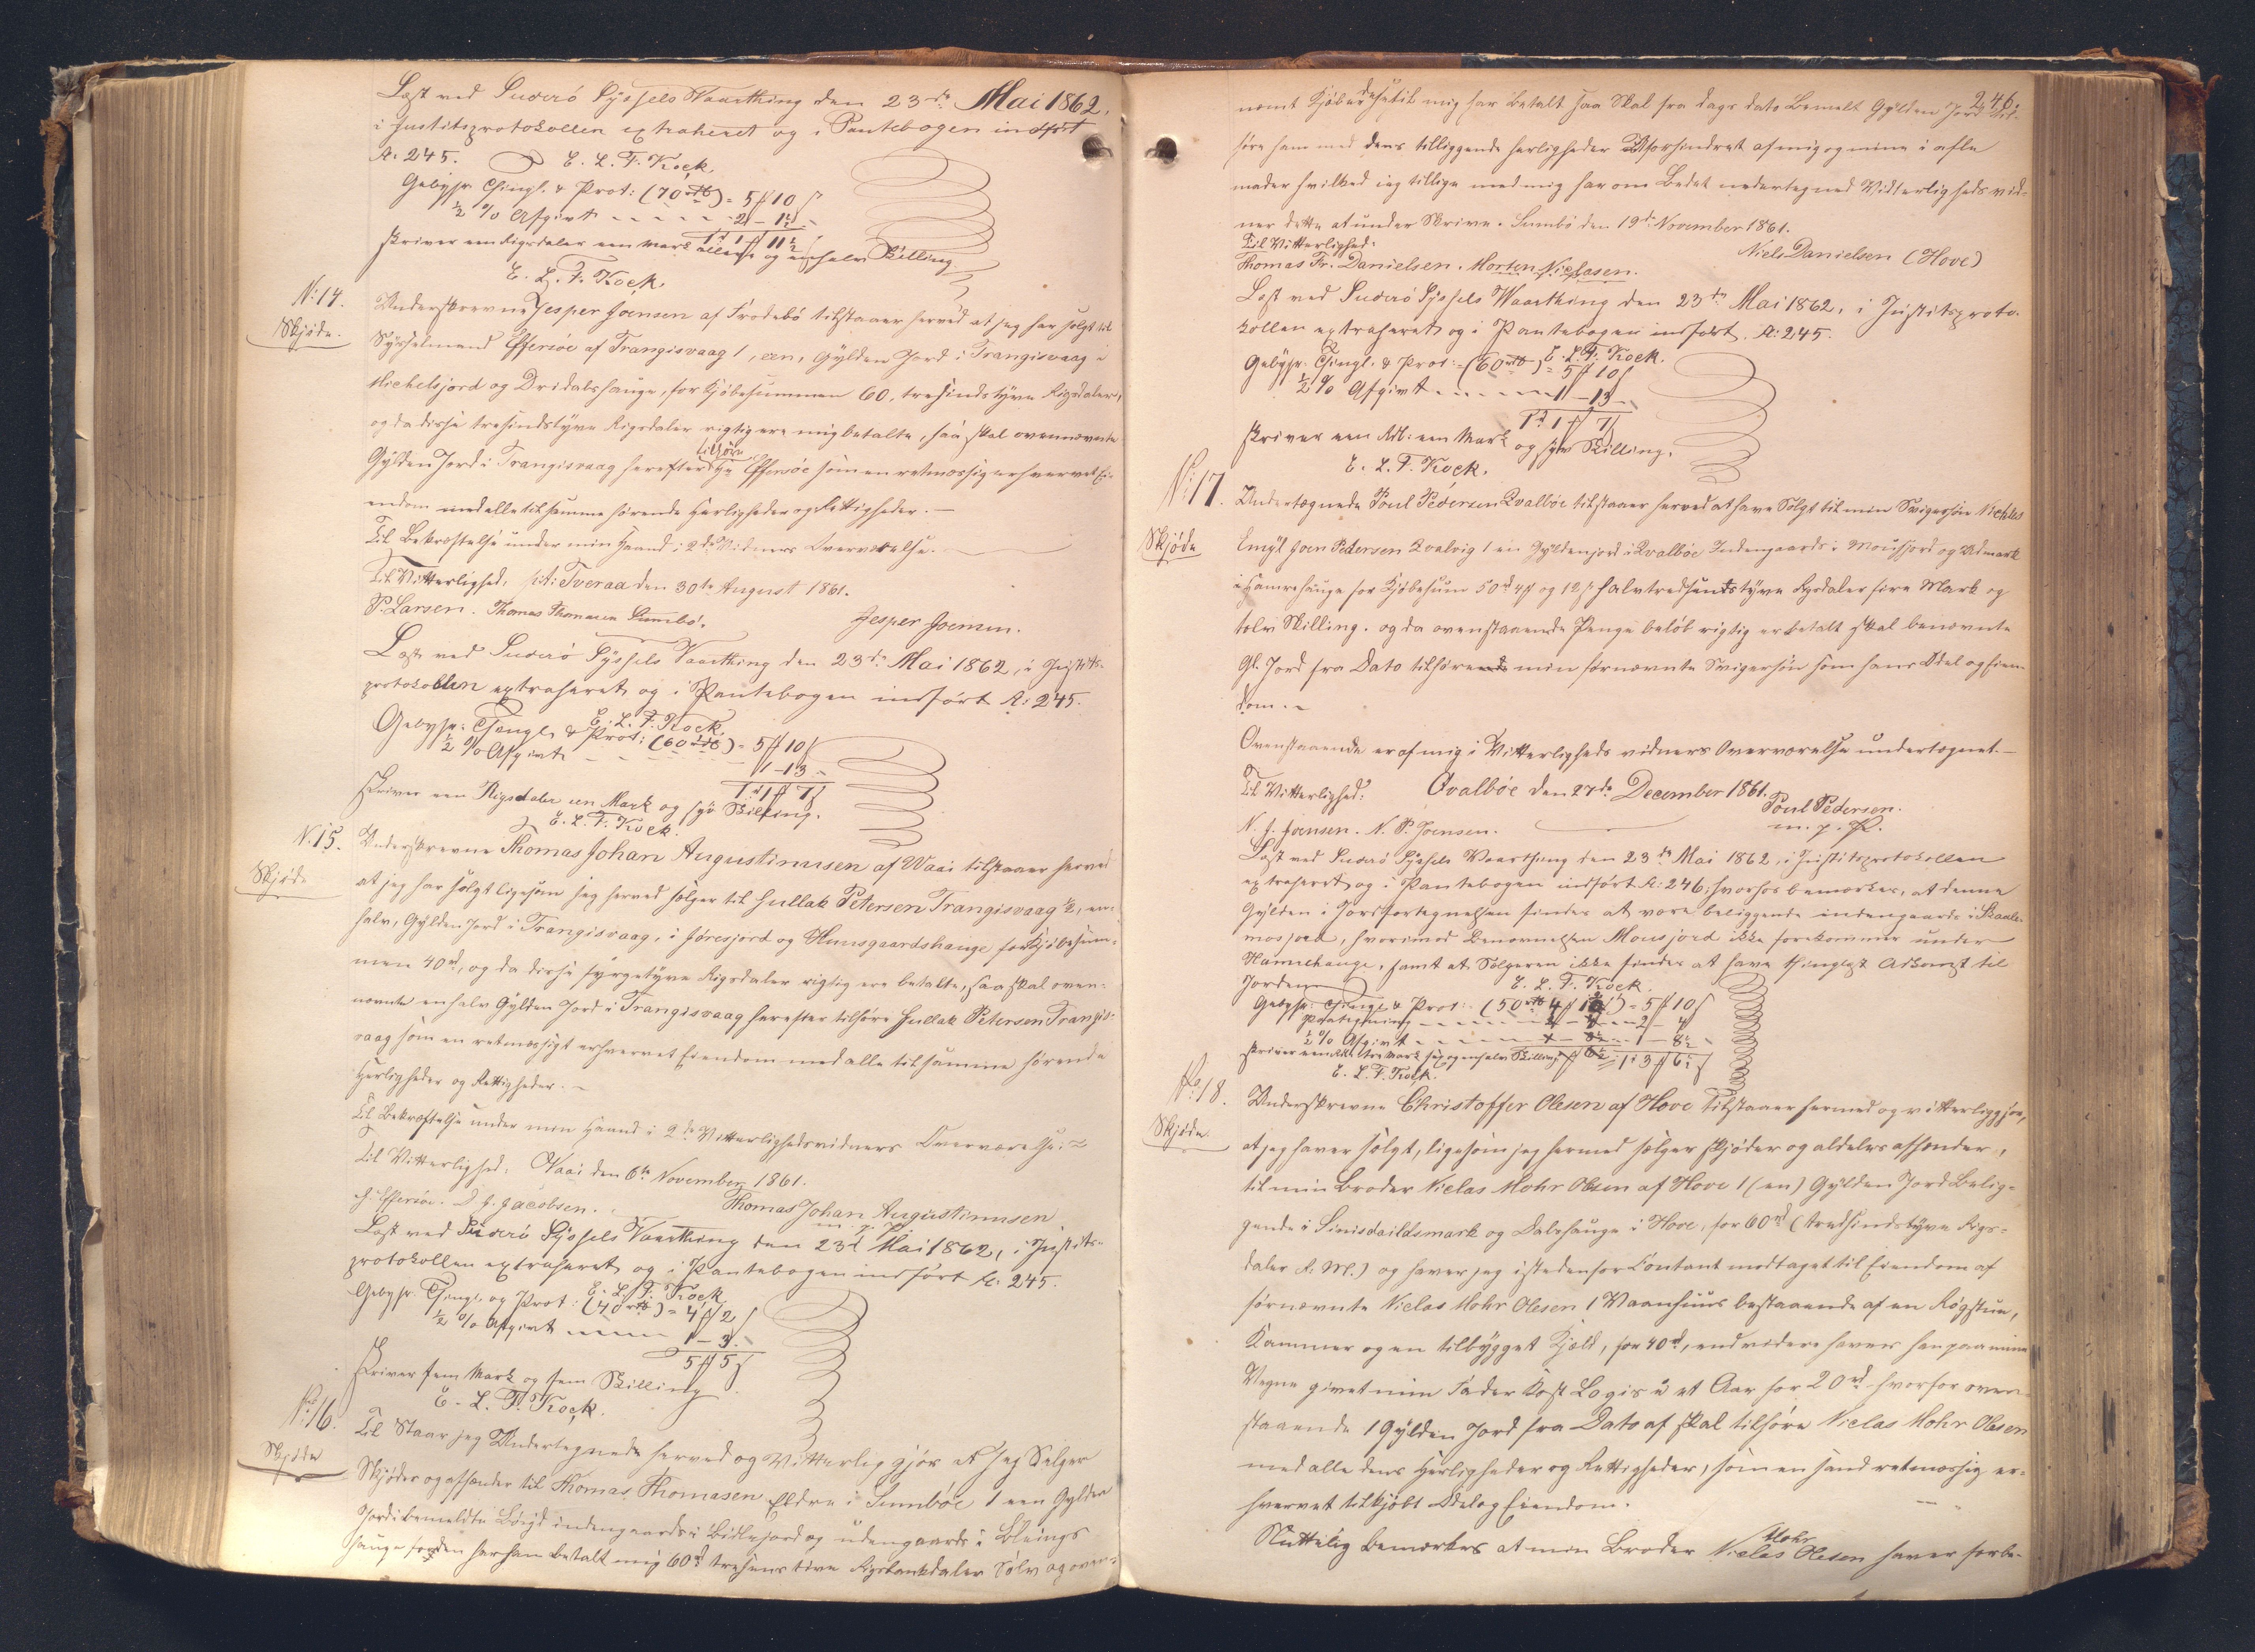 Læst ved Suderö Syssels Vaarthing den 23de Mai 1862,
i Justitsprotokollen extraheret og i Pantebogen indført
A: 245.
E. L. F. Kock.
Gebyhr: Thingl. & Prot: (70 rdl.) = 5 ₰ 10 ß
½ % Afgivt - - - - - 2 - 1½
1rd 1 ₰ 11½ ß
skriver een Rigsdaler een Mark elleve og en halv Skilling
E. L. F. Kock.
No: 14.
Skjøde.
Underskrevne Jesper Joensen af Frodebö tilstaaer herved at jeg har solgt til
Sysselmand Effersöe af Trangisvaag 1, een, Gylden Jord i Trangisvaag i
Michelsjord og Dridalshauge, for Kjøbesummen 60, tresindstyve Rigsdaler,
og da disse tresindstyve Rigsdaler rigtig ere mig betalte, saa skal ovennævnte
Gylden Jord i Trangisvaag herefter tilhøre Hr Effersöe som en retmæssig erhvervet Ei-
endom med alle tilsamme hørende Herligheder og Rettigheder. —
Til Bekræftelse under min Haand i 2de Vidners Overværelse.
Til Vitterlighed, pt: Tveraa den 30te August 1861.
P. Larsen. Thomas Thomasen Sumbö.
Jesper Joensen.
Læst ved Suderö Syssels Vaarthing den 23de Mai 1862, i Justits-
protokollen extraheret og i Pantebogen indført A: 245.
E. L. F. Kock.
Gebyhr: Thingl. & Prot: (60 rdl.) = 5 ₰ 10 ß
½ % Afgivt - - - - 1 - 13 -
1rd 1 ₰ 7 ß
skriver een Rigsdaler een Mark og syv Skilling.
E. L. F. Kock.
No. 15.
Skjøde
Underskrevne Thomas Johan Augustinusen af Waai tilstaaer herved
at jeg har solgt ligesom jeg herved sælger til Hullak Petersen Trangisvaag ½, een
halv, Gylden Jord i Trangisvaag, i Jøresjord og Huusgaardshauge for Kjøbesum-
men 40rd, og da disse fyrgetyve Rigsdaler rigtig ere betalte, saa skal oven-
nævnte en halv Gylden Jord i Trangisvaag herefter tilhøre Hullak Petersen Trangis-
vaag som en retmæssigt erhvervet Eiendom med alle tilsamme hørende
Herligheder og Rettigheder. —
Til Bekræftelse under min Haand i 2de Vitterlighedsvidners Overværelse.
Til Vitterlighed. Waai den 6te November 1861.
J. Effersöe. D. J. Jacobsen.
Thomas Johan Augustinusen
m. p. P.
Læst ved Suderö Syssels Vaarthing den 23d Mai 1862, i Justits-
protokollen extraheret og i Pantebogen indført A: 245.
E. L. F. Kock
Gebyhr. Thingl. og Prot: (40 rdl.) = 4 ₰ 2 ß
½ % Afgivt - - - 1 - 3 -
5 ₰ 5 ß
skriver fem Mark og fem Skilling
E. L. F. Kock.
No: 16.
Skjøde
Til Staar jeg Undertegnede herved og Vitterlig gjør at Jeg Sælger
Skjøder og afhænder til Thomas Thomasen Eldre i Sumböe 1 een Gylden
Jord i bemeldte Böigd indengaards i Bidlejord og udengaards i Bleings
hauge for den har han betalt mig 60rd tresens tive Rigsbankdaler Sölv og oven-
246.
nævnt Kjøbesum til mig har betalt saa Skal fra dags dato Bemelt Gylden Jord til-
høre ham med dens tilliggende herligheder Uforhindret af mig og mine i alle
maader hvilked ieg tillige med mig har om Bedet nedertegned Vidterligheds vid-
ner dette at under Skrive. Sumbö den 19de November 1861.
Til Vitterlighed:
Niels Danielsen (Hove)
Thomas Fr. Danielsen. Morten Niclasen.
Læst ved Suderö Syssels Waarthing den 23de Mai 1862, i Justitsproto-
kollen extraheret og i Pantebogen indført. A: 245.
E. L. F. Kock.
Gebyhr. Thingl. & Prot: (60 rdl.) = 5 ₰ 10 ß
½ % Afgivt - - - - 1 - 13 -
1rd 1 ₰ 7 ß
skriver een Rdl: een Mark og syv Skilling.
E. L. F. Kock.
No: 17.
Skjøde
Undertegnede Poul Pedersen Qvalböe tilstaaer herved at have Solgt til min Svigersön Nichlas
Emgl Joen Petersen Qvalvig 1 en Gyldenjord i Qvalböe Indengaards i Mousjord og Udmark
i Hamrehauge for Kjöbesum 50rd 4 ₰ og 12 ß halvtredsintstyve Rigsdaler fire Mark og
tolv Skilling. og da ovenstaaende Penge beløb rigtig er betalt skal benævnte
Gl. Jord fra Dato tilhøre min fornævnte Svigersön som hans Odel og Eien-
dom. —
Ovenstaaende er af mig i Vitterligheds vidners Overværelse undertegnet. —
Til Vitterlighed: Qvalböe den 27de December 1861.
Poul Pedersen.
m. p. P.
N. J. Joensen. N. P. Joensen.
Læst ved Suderö Syssels Vaarthing den 23de Mai 1862, i Justitsprotokollen
extraheret og i Pantebogen indført A: 246; hvorhos bemærkes, at denne
Gylden i Jordfortegnelsen findes at være beliggende indengaards i Skaale-
mosjord, hvorimod Benævnelsen Mousjord ikke forekommer under
Hamrehauge, samt at Sælgeren ikke findes at have thinglæst Adkomst til
Jorden.
E. L. F. Kock.
Gebyhr: Thingl. & Prot: (50 rdl. 4 ₰ 12 ß) = 5 ₰ 10 ß
Paategning - - - - 2 - 4
½ % Afgivt - - - - 1 - 8½ -
skriver een Rdl. tre Mark sex og en halv Skilling 1 : 3 ₰ 6½ ß
E. L. F. Kock.
No: 18.
Skjøde.
Underskrevne Christoffer Olesen af Hove Tilstaaer hermed og vitterliggjör,
at jeg haver solgt, ligesom jeg hermed sælger skjøder og aldeles afhænder,
til min Broder Niclas Mohr Olsen af Hove 1 (en) Gylden Jord Belig-
gende i Sinisdaildsmark og Dalshauge i Hove, for 60rd (tredsindstyve Rigs-
daler R. M.) og haver jeg istedenfor Contant modtaget til Eiendom af
fornævnte Niclas Mohr Olesen 1 Vaanhuus bestaaende af en Røgstue,
Kammer og en tilbygget Kjæld, for 40rd, endvidere haver han paa mine
Vegne givet min Fader Kost Logis i et Aar for 20rd hvorfor oven-
staaende 1 Gylden Jord fra Dato af skal tilhøre Niclas Mohr Olesen
med alle dens Herligheder og Rettigheder, som en sand retmæssig er-
hvervet tilkjöbt Odel og Eiendom.
Sluttelig bemærkes at min Broder Niclas Mohr Olesen haver forbe-